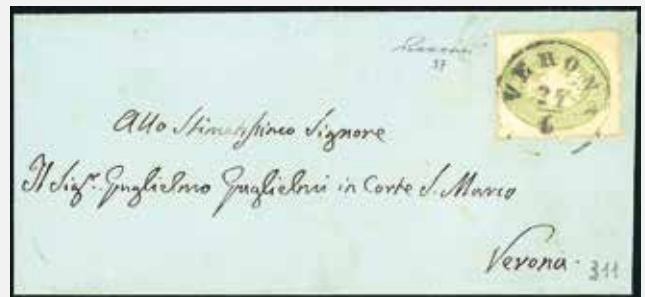 37
VERONA
27
6
Allo Stimatissimo Signore
Il Sigr. Guglielmo Guglielmi in Corte S. Marco
Verona.
311